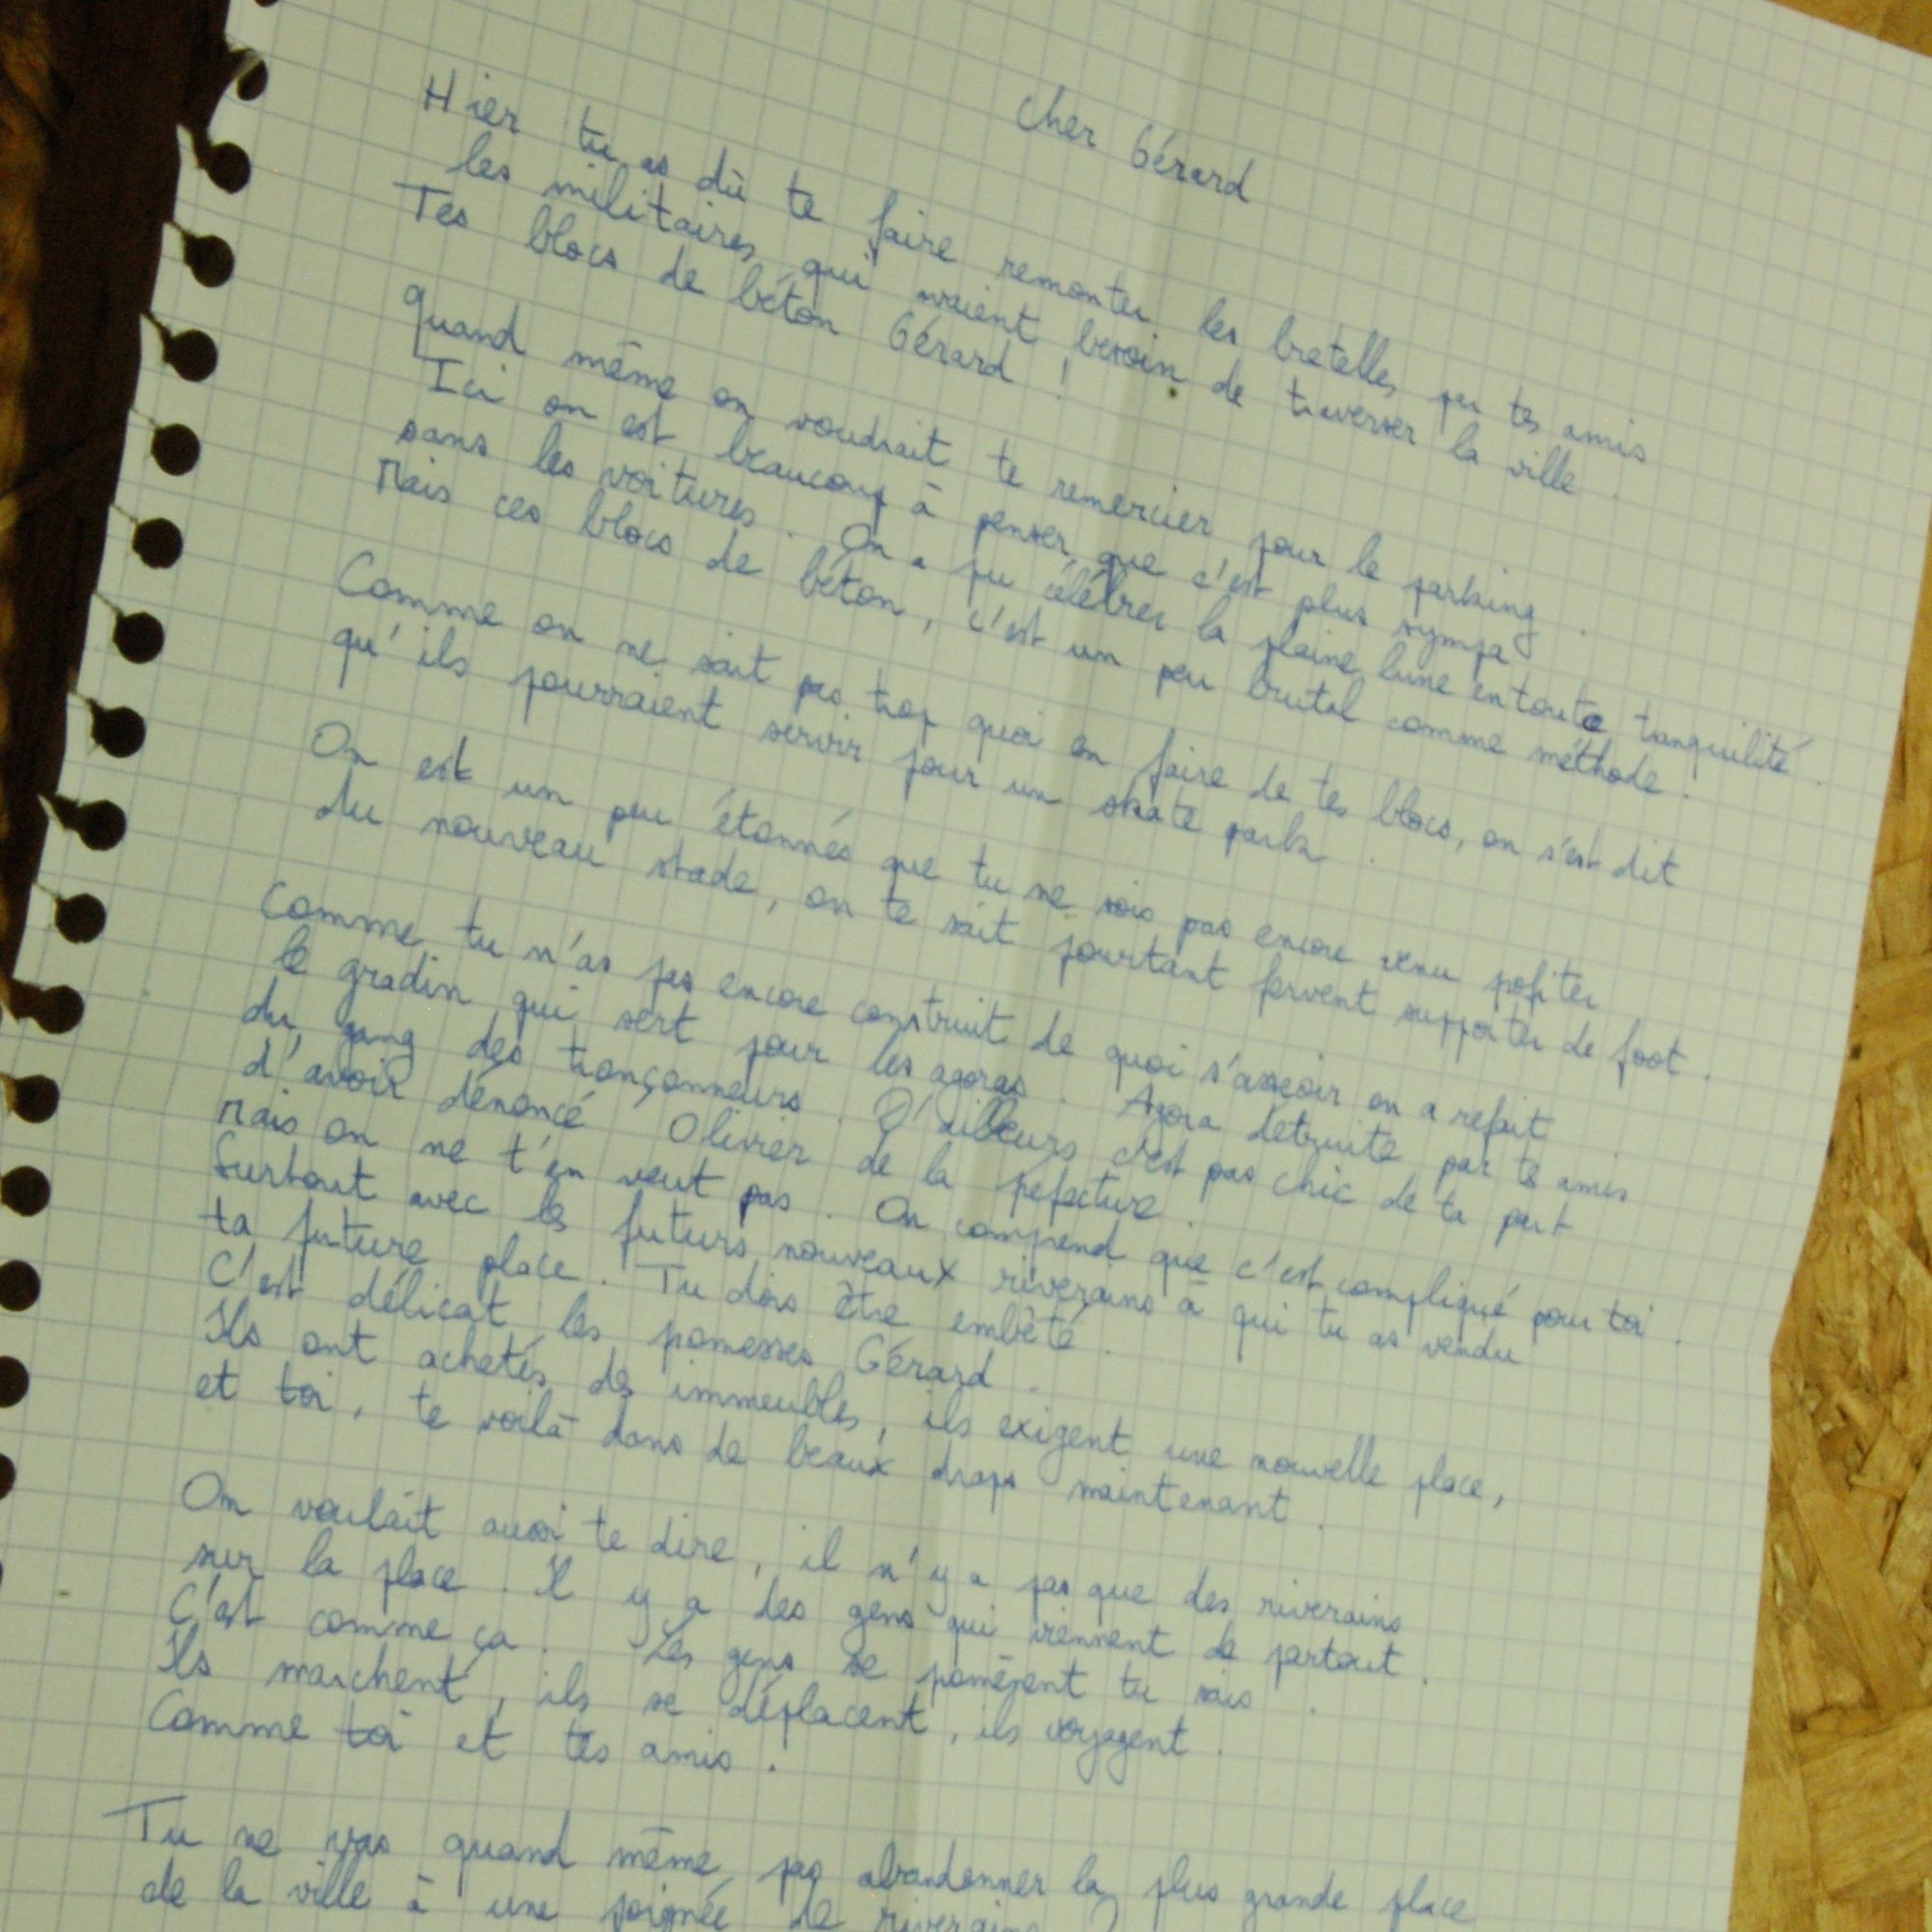 Cher Gérard
Hier tu as dû te faire remonter les bretelles par tes amis
les militaires qui avaient besoin de traverser la ville.
Tes blocs de béton Gérard !
Quand même on voudrait te remercier pour le parking.
Ici on est beaucoup à penser que c'est plus sympa
sans les voitures. On a pu célébrer la plaine lune en toute tranquilité.
Mais ces blocs de béton, c'est un peu brutal comme méthode !
Comme on ne sait pas trop quoi en faire de tes blocs, on s'est dit
qu'ils pourraient servir pour un skate park.
On est un peu étonnés que tu ne sois pas encore venu profiter
du nouveau stade, on te sait pourtant fervent supporter de foot.
Comme tu n'as pas encore construit de quoi s'asseoir on a refait
le gradin qui sert pour les agoras. Agora détruite par te amis
du gang des tronçonneurs. D'ailleurs c'est pas chic de ta part
d'avoir dénoncé Olivier de la préfecture.
Mais on ne t'en veut pas. On comprend que c'est compliqué pour toi.
Surtout avec les futurs nouveaux riverains à qui tu as vendu
ta future place. Tu dois être embêté.
C'est délicat les promesses Gérard.
Ils ont achetés des immeubles, ils exigent une nouvelle place,
et toi, te voilà dans de beaux draps maintenant.
On voulait aussi te dire, il n'y a pas que des riverains
sur la place. Il y a des gens qui viennent de partout.
C'est comme ça. Les gens se promènent tu sais.
Ils marchent, ils se déplacent, ils voyagent.
Comme toi et tes amis.
Tu ne vas quand même pas abandonner la plus grande place
de la ville à une poignée de riverains ?